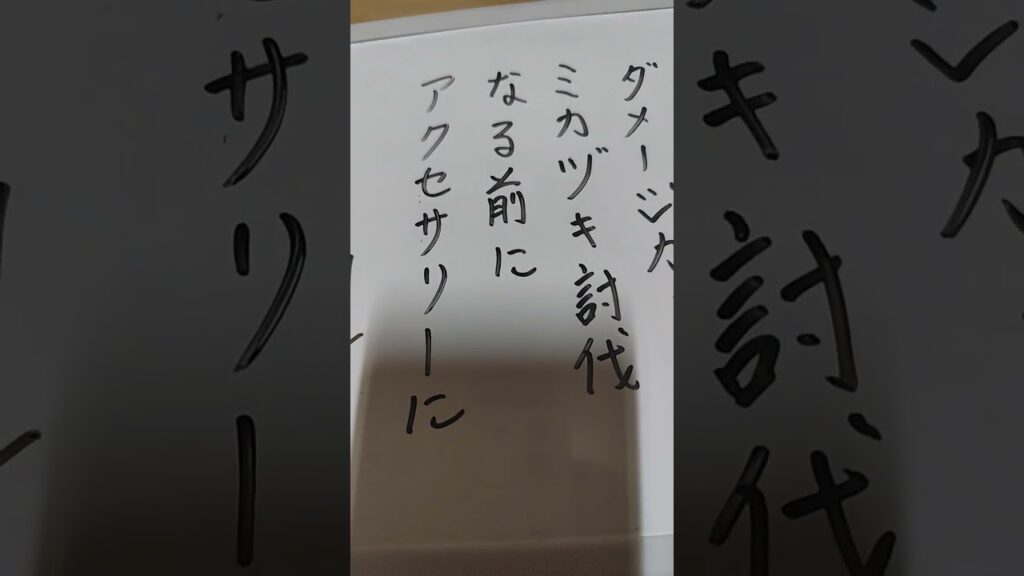 アクセサリーに
なる前に
ミカヅキ討伐
ダメージカ